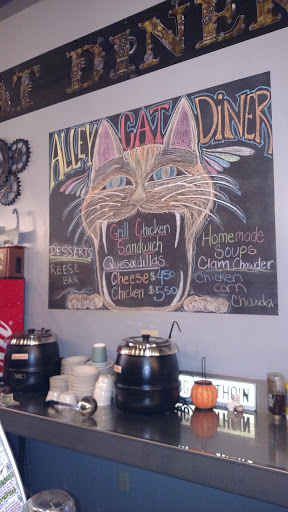 AT DINER
ALLEY CAT DINER
Grill Chicken
Sandwich
Quesadillas
Cheese $4.50
Chicken $5.50
DESSERTS
REESE
BAR
Homemade
Soups
Clam Chowder
Chicken
Corn
Chowda